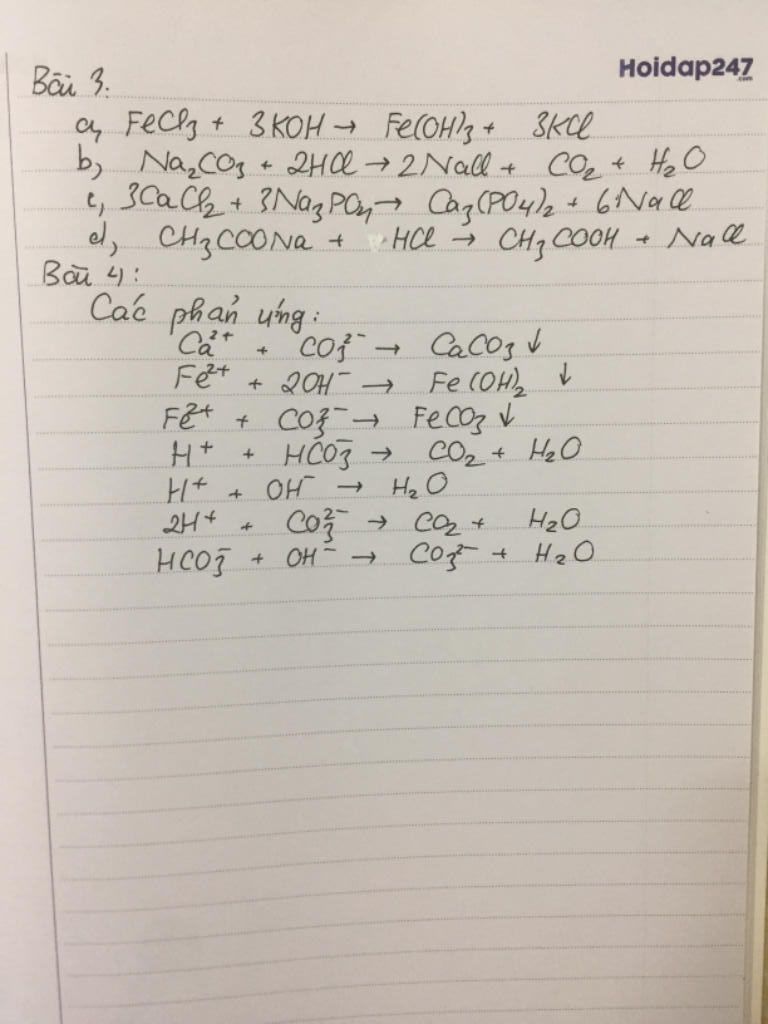 Hoidap247
.com
Bài 3:
a, FeCl₃ + 3KOH → Fe(OH)₃ + 3KCl
b, Na₂CO₃ + 2HCl → 2NaCl + CO₂ + H₂O
c, 3CaCl₂ + 3Na₃PO₄ → Ca₃(PO4)₂ + 6NaCl
d, CH₃COONa + HCl → CH₃COOH + NaCl
Bài 4:
Các phản ứng:
Ca²⁺ + CO₃²⁻ → CaCO₃ ↓
Fe²⁺ + 2OH⁻ → Fe(OH)₂ ↓
Fe²⁺ + CO₃²⁻ → FeCO₃ ↓
H⁺ + HCO₃⁻ → CO₂ + H₂O
H⁺ + OH⁻ → H₂O
2H⁺ + CO₃²⁻ → CO₂ + H₂O
HCO₃⁻ + OH⁻ → CO₃²⁻ + H₂O